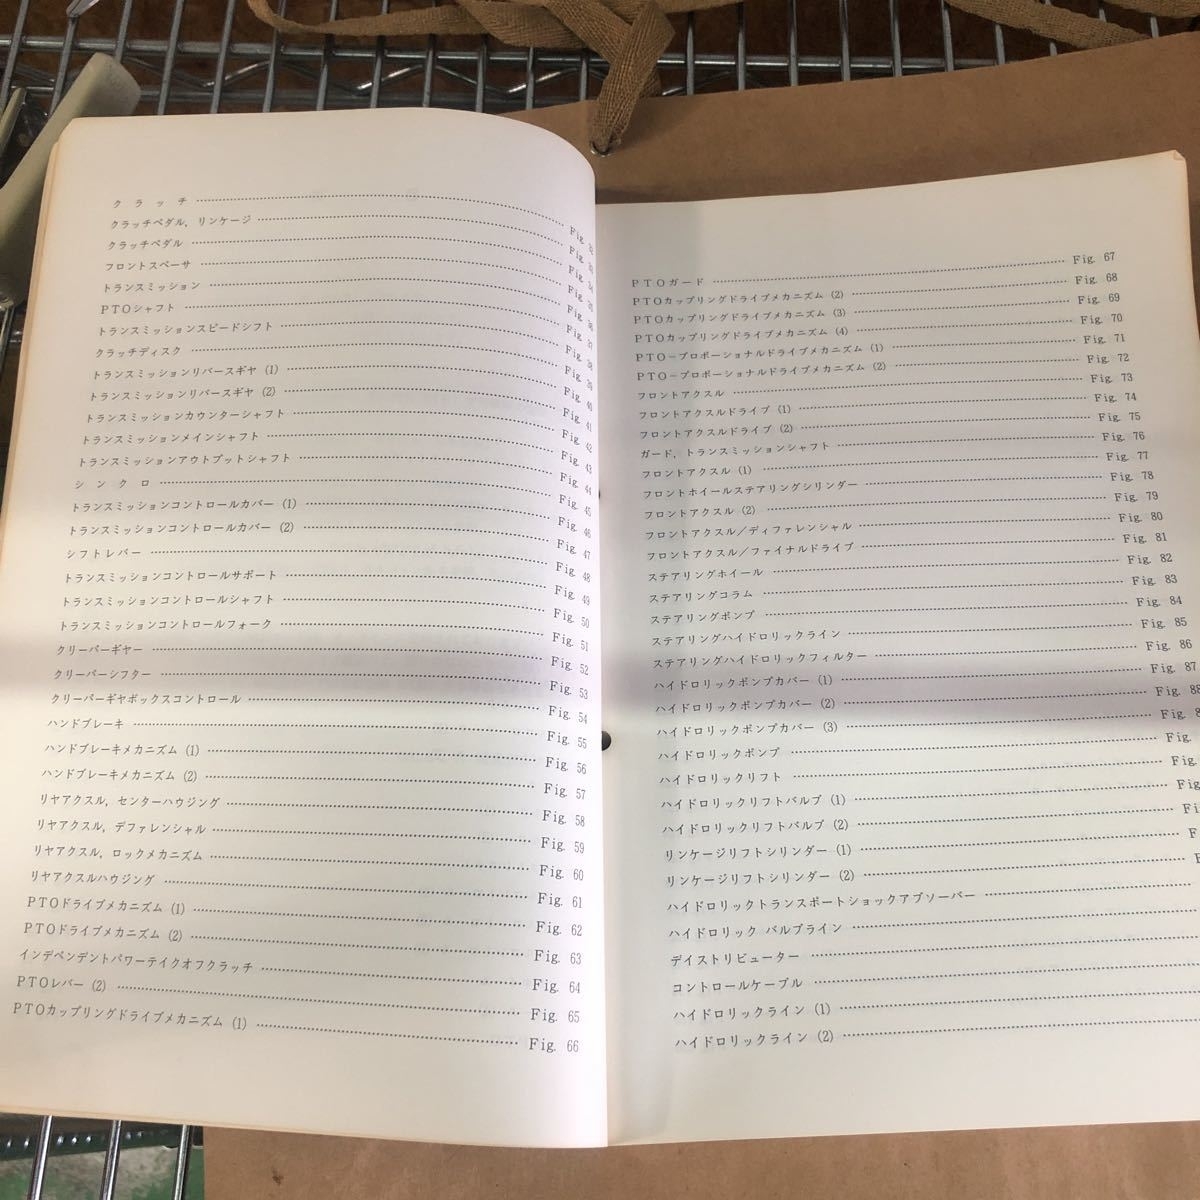 クラッチ ……… Fig. 32
クラッチペダル，リンケージ ……… Fig. 33
クラッチペダル ……… Fig. 34
フロントスペーサ ……… Fig. 35
トランスミッション ……… Fig. 36
PTOシャフト ……… Fig. 37
トランスミッションスピードシフト ……… Fig. 38
クラッチディスク ……… Fig. 39
トランスミッションリバースギヤ (1) ……… Fig. 40
トランスミッションリバースギヤ (2) ……… Fig. 41
トランスミッションカウンターシャフト ……… Fig. 42
トランスミッションメインシャフト ……… Fig. 43
トランスミッションアウトプットシャフト ……… Fig. 44
シンクロ ……… Fig. 45
トランスミッションコントロールカバー (1) ……… Fig. 46
トランスミッションコントロールカバー (2) ……… Fig. 47
シフトレバー ……… Fig. 48
トランスミッションコントロールサポート ……… Fig. 49
トランスミッションコントロールシャフト ……… Fig. 50
トランスミッションコントロールフォーク ……… Fig. 51
クリーパーギヤー ……… Fig. 52
クリーパーシフター ……… Fig. 53
クリーパーギヤボックスコントロール ……… Fig. 54
ハンドブレーキ ……… Fig. 55
ハンドブレーキメカニズム (1) ……… Fig. 56
ハンドブレーキメカニズム (2) ……… Fig. 57
リヤアクスル，センターハウジング ……… Fig. 58
リヤアクスル，デファレンシャル ……… Fig. 59
リヤアクスル，ロックメカニズム ……… Fig. 60
リヤアクスルハウジング ……… Fig. 61
PTOドライブメカニズム (1) ……… Fig. 62
PTOドライブメカニズム (2) ……… Fig. 63
インデペンデントパワーテイクオフクラッチ ……… Fig. 64
PTOレバー (2) ……… Fig. 65
PTOカップリングドライブメカニズム (1) ……… Fig. 66
PTOガード ……… Fig. 67
PTOカップリングドライブメカニズム (2) ……… Fig. 68
PTOカップリングドライブメカニズム (3) ……… Fig. 69
PTOカップリングドライブメカニズム (4) ……… Fig. 70
PTO－プロポーショナルドライブメカニズム (1) ……… Fig. 71
PTO－プロポーショナルドライブメカニズム (2) ……… Fig. 72
フロントアクスル ……… Fig. 73
フロントアクスルドライブ (1) ……… Fig. 74
フロントアクスルドライブ (2) ……… Fig. 75
ガード，トランスミッションシャフト ……… Fig. 76
フロントアクスル (1) ……… Fig. 77
フロントホイールステアリングシリンダー ……… Fig. 78
フロントアクスル (2) ……… Fig. 79
フロントアクスル／ディファレンシャル ……… Fig. 80
フロントアクスル／ファイナルドライブ ……… Fig. 81
ステアリングホイール ……… Fig. 82
ステアリングコラム ……… Fig. 83
ステアリングポンプ ……… Fig. 84
ステアリングハイドロリックライン ……… Fig. 85
ステアリングハイドロリックフィルター ……… Fig. 86
ハイドロリックポンプカバー (1) ……… Fig. 87
ハイドロリックポンプカバー (2) ……… Fig. 88
ハイドロリックポンプカバー (3) ……… Fig. 8
ハイドロリックポンプ ……… Fig.
ハイドロリックリフト ……… Fig.
ハイドロリックリフトバルブ (1) ……… Fig.
ハイドロリックリフトバルブ (2) ……… Fi
リンケージリフトシリンダー (1) ……… F
リンケージリフトシリンダー (2) ………
ハイドロリックトランスポートショックアブソーバー ………
ハイドロリック バルブライン ………
デイストリビューター ………
コントロールケーブル ………
ハイドロリックライン (1) ………
ハイドロリックライン (2) ………